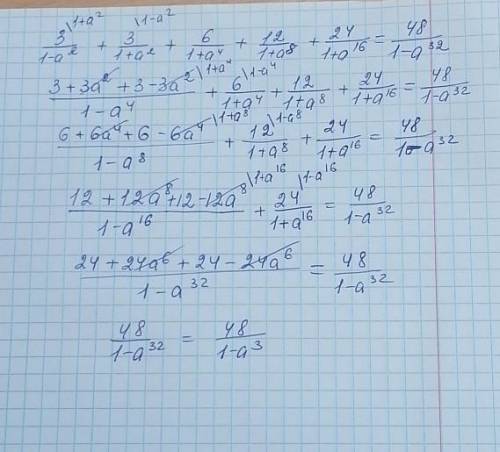 3\1+a² / 1-a² + 3\1-a² / 1+a² + 6/1+a⁴ + 12/1+a⁸ + 24/1+a¹⁶ = 48/1-a³²
3+3a²+3-3a²\1+a⁴ / 1-a⁴ + 6\1-a⁴ / 1+a⁴ + 12/1+a⁸ + 24/1+a¹⁶ = 48/1-a³²
6+6a⁴+6-6a⁴\1+a⁸ / 1-a⁸ + 12\1-a⁸ / 1+a⁸ + 24/1+a¹⁶ = 48/1-a³²
12+12a⁸+12-12a⁸\1+a¹⁶ / 1-a¹⁶ + 24\1-a¹⁶ / 1+a¹⁶ = 48/1-a³²
24+24a⁶+24-24a⁶ / 1-a³² = 48/1-a³²
48/1-a³² = 48/1-a³